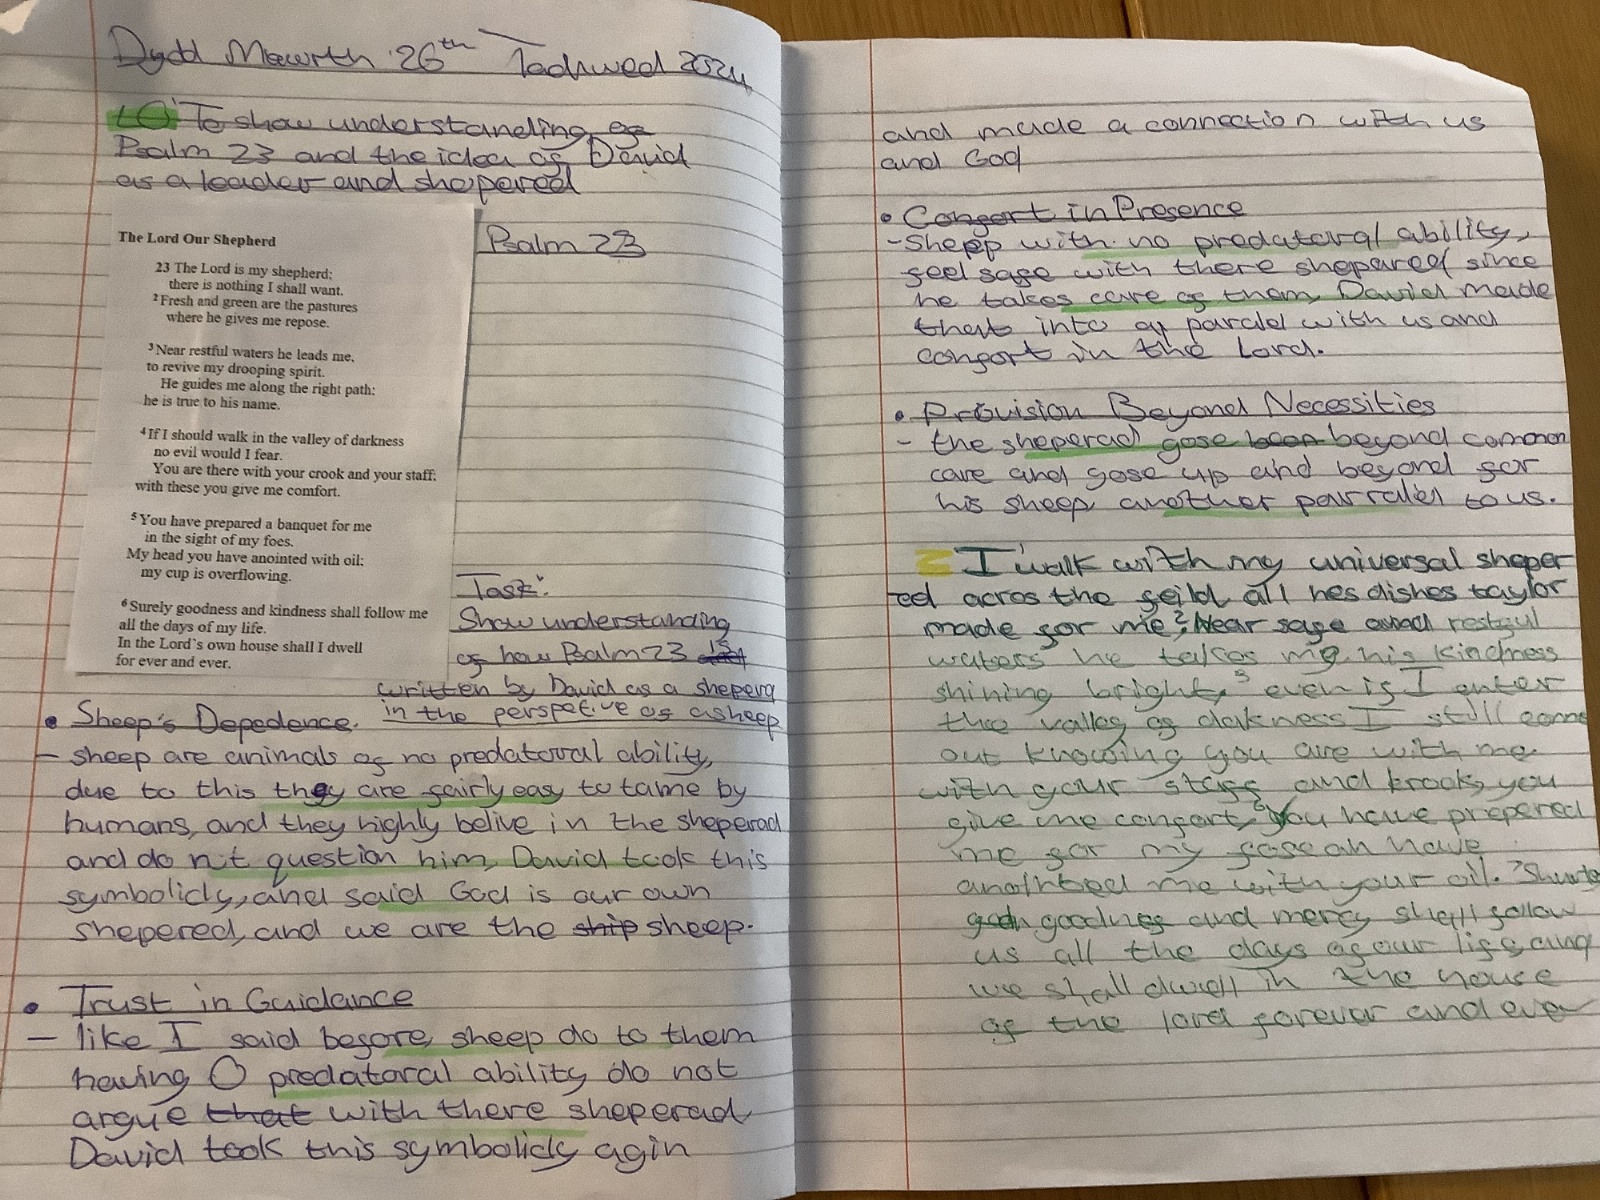 Dydd Mawrth 26th Tachwed 2024
LO To show understanding of
Psalm 23 and the idea of David
as a leader and shepered
The Lord Our Shepherd
23 The Lord is my shepherd;
there is nothing I shall want.
2 Fresh and green are the pastures
where he gives me repose.
3 Near restful waters he leads me,
to revive my drooping spirit.
He guides me along the right path;
he is true to his name.
4 If I should walk in the valley of darkness
no evil would I fear.
You are there with your crook and your staff;
with these you give me comfort.
5 You have prepared a banquet for me
in the sight of my foes.
My head you have anointed with oil;
my cup is overflowing.
6 Surely goodness and kindness shall follow me
all the days of my life.
In the Lord's own house shall I dwell
for ever and ever.
Psalm 23
Task:
Show understanding
of how Psalm 23 is
written by David as a sheperd
in the perspetive of a sheep
• Sheep's Depedence.
- sheep are animals of no predatoral ability,
due to this they are fairly easy to tame by
humans, and they highly belive in the sheperad
and do not question him, David took this
symbolicly, and said God is our own
shepered, and we are the ship sheep.
• Trust in Guidance
- like I said before, sheep do to them
having 0 predatoral ability do not
argue that with there sheperad
David took this symbolicly agin
and made a connection with us
and God
• Comfort in Presence
- Sheep with no predatoral ability,
feel safe with there shepared since
he takes care of them, David made
that into a paralel with us and
comfort in the Lord.
• Provision Beyond Necessities
- the sheperad gose beyond common
care and gose up and beyond for
his sheep another parralel to us.
I walk with my universal sheper
ed acros the feild all hes dishes taylor
made for me, Near safe and restful
waters he takes me, his kindness
shining bright, 3 even if I enter
the valley of darkness I still come
out knowing you are with me.
with your staff and krook, you
give me comfort, You have prepered
me for my fose an have
with your oil.
goodnes and mercy shall follow
us all the days of our life, and
we shall dwell in the house
of the lord forever and ever